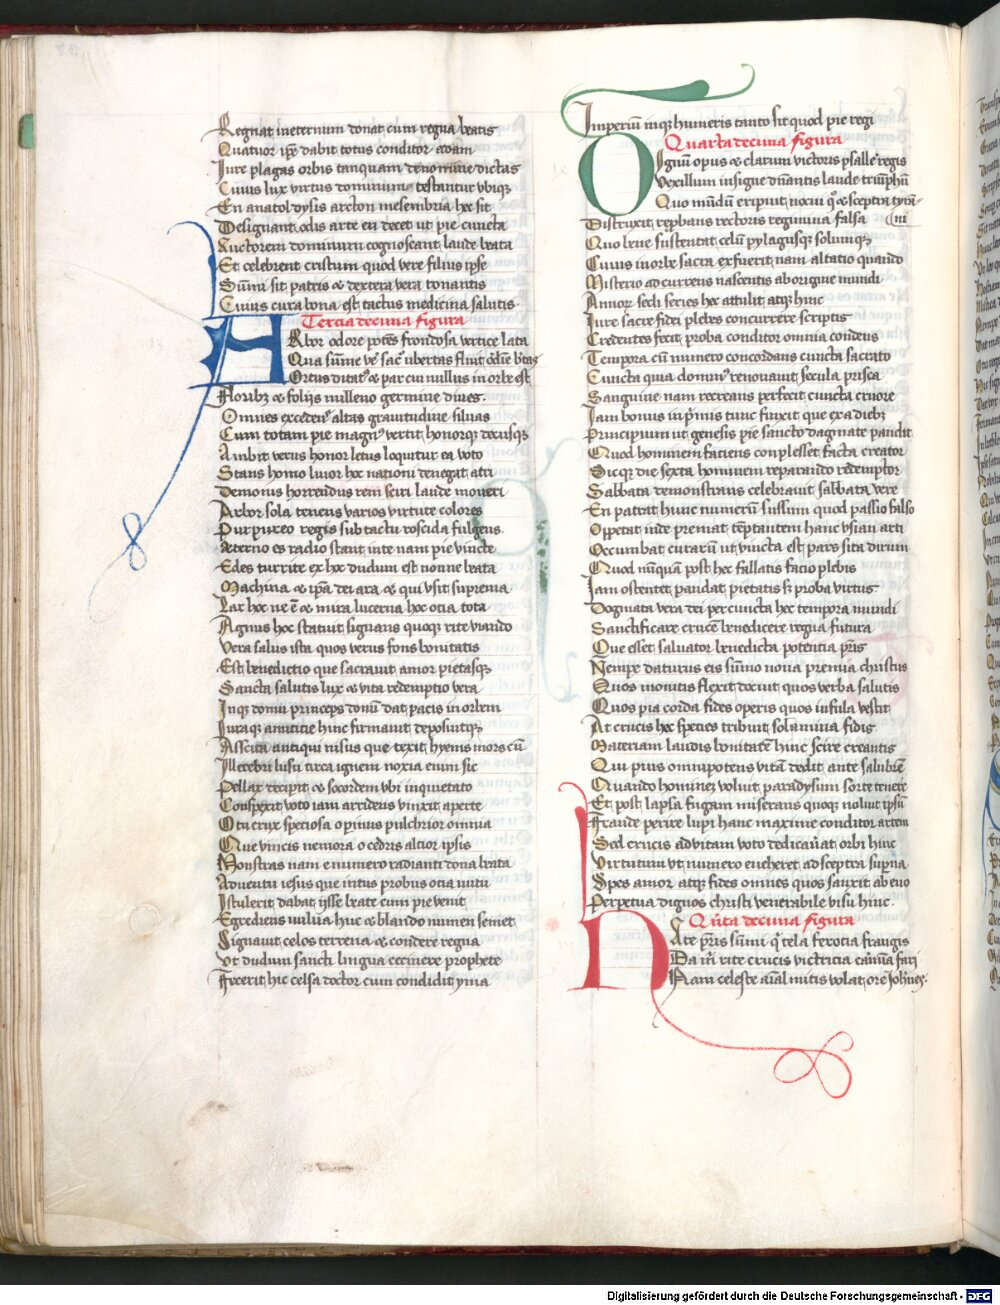 Regnat ineternum donat cum regna beatis
Quatuor ip̅e dabit totus conditor adam
Jure plagas orbis tanquam denomine dictas
Cuius lux virtus dominium testantur vbiqꝫ
En anatol dysis arcton mesembria hec sit
Designant odis arte en decet ut pie cuncta
Auctorem dominum cognoscant laude beata
Et celebrent cristum quod vere filius ipse
Su̅mi sit patris et dextera vera tonantis
Cuius cura bona est tactus medicina salutis
Tercia decima figura
ARbor odore potens frondosa vertice lata
Qua su̅me ubertas fluit
Ortus ditat et par cui nullus in orbe est
Floribꝫ et folijs nulleno germine diues
Omnes exceden̅ altas grauitudine siluas
Cum totam pie magn vertit honorqꝫ decusqꝫ
Ambit verus honor letus loquitur ea voto
Stans homo liuor hoc nationi denegat atri
Demonis horrendus rem sciri laude moueri
Arbor sola tenens varios virtute colores
Purpureo regis sub tactu roscida fulgens
Aeterno es radio stant inte nam pie vincte
Edes turrite ex hoc dudum est nonne beata
Machina et ip̅a dei ara et qui vsit suprema
Lar hoc ne e̅ et mira lucerna hec ocia tota
Agnus hoc statuit signans quoqꝫ rite viando
Vera salus ista quos verus fons bonitatis
Est benedictio que sacrauit amor pietasqꝫ
Sancta salutis lux et vita redemptio vera
Inqꝫ domu princeps donu̅ dat pacis in orbem
Juraqꝫ amicitie hinc firmauit deposuitqꝫ
Asscita antiqui nisus que texit hyems mors cu̅
Illecebri lusu circa ignem noxia enim sic
Pellax decipit et socordem vbi inquietato
Conspexit voto iam arridens vinxit aperte
O tu crux speciosa o pinus pulchrior omnia
Que vincis nemora o cedris altior ipsis
Monstras nam enumero radianti dona beata
Aduentu iesus que intus probus ocia nutu
Istulerit dabat ijsse beate cum pie venit
Egrediens uulua huc et blando numen seruet
Signauit celos terrena et condere regna
Vt dudum sancti lingua cecinere prophete
Fecerit hic celsa doctor cum condidit yma
Imperiu̅ inqꝫ humeris tanto sit quod pie regi
Quarta decima figura
OIgnu̅ opus et clarum victoris psalle regis
Vexillum insigne dn̅antis laude triu̅phu̅
Quo mu̅du̅ eripuit noxui qꝫ et sceptra tyra̅
Distruxit reprobans rectoris regmina falsa (ni
Quo breue sustentat celu̅ pylagusqꝫ solumqꝫ
Cuius inorbe sacra exfuerit nam altatio quando
Misterio adcurrens nascentis aborigine mundi
Annor̅ secli series hec attulit atqꝫ hinc
Jure sacre fidei plebes concurrere scriptis
Credentes fecit proba conditor omnia condens
Tempora cu̅ numero concordans cuncta sacrato
Cuncta quia domin renouauit secula prisca
Sanguine nam recreans perfecit cuncta cruore
Jam bonus in primis tunc finxit que ex a diebꝫ
Principium ut genesis pie sancto dagmate pandit
Quod hominem faciens complesset facta creator
Sicqꝫ die sexta hominem reparando redemptor
Sabbata demonstrans celebrauit sabbata vere
En patrat hunc numeru̅ sussimi quod passio falso
Oppetat inde premat te̅ptantem hanc vsian arti
Occumbat curaru̅ ut vincta est pars sita dirum
Quod nu̅quā post hec fallatis facio plebis
Jam ostentet pandat pietatis s̅ proba virtus
Dogmata vera dei per cuncta hec tempora mundi
Sanctificare cruce̅ benedicere regna futura
Que esset saluator benedicta potentia pr̅is
Nempe daturus eis su̅mo noua premia christus
Quos monitis flexit docuit quos verba salutis
Quos pia corda fides operis quos infula vestit
At crucis hec species tribuit solamina fidis
Materiam laudis bonitate̅ hinc scire creantis
Qui prius omnipotens vitā dedit ante salubre̅
Quando homines voluit paradysum sorte tenere
Et post lapsa fugam miserans quoqꝫ noluit ipsu̅
Fraude perire lupi hanc maxime conditor artem
Sed crucis aduitam voto dedicauit orbi hinc
Virtutum vt numero eueheret ad sceptra superna
Spes amor atqꝫ fides omnes quos sanxit ab euo
Perpetua dignos christi venerabile visu hinc
Qui̅ta decima figura
HAte pr̅is su̅mi q̅ tela ferocia frangis
Da mi̅ rite crucis victricia carmina fari
Nam celeste a̅ial mitis volat ore Joha̅nes
Digitalisierung gefördert durch die Deutsche Forschungsgemeinschaft - DFG